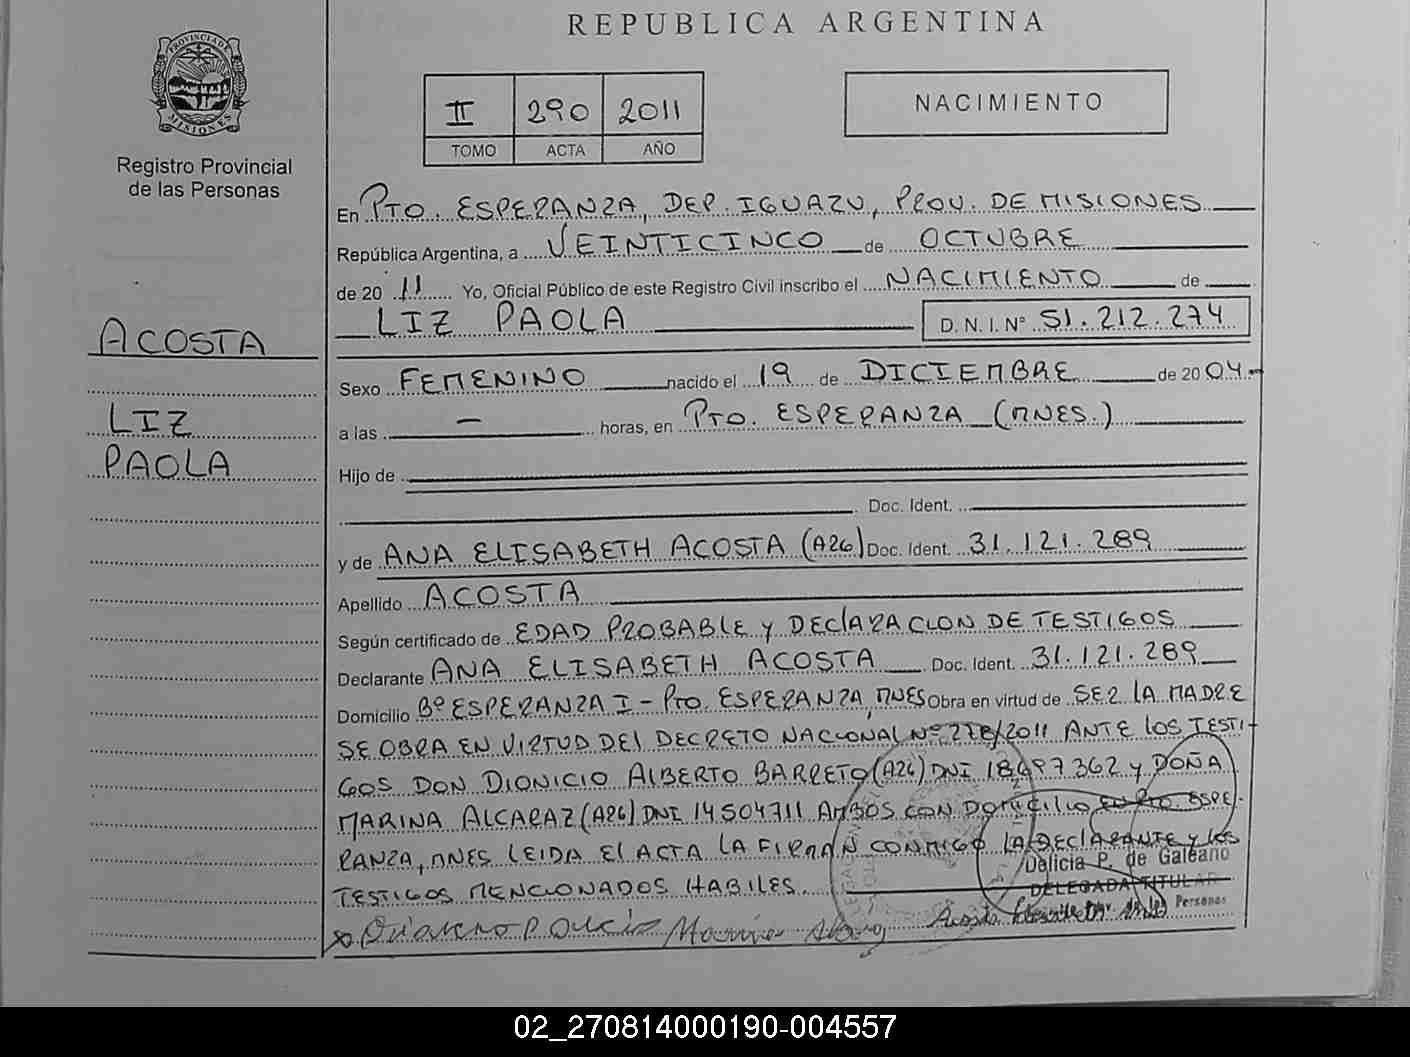 REPUBLICA ARGENTINA
PROVINCIA DE
MISIONES
Registro Provincial
de las Personas
II 290 2011
TOMO ACTA AÑO
NACIMIENTO
ACOSTA
LIZ
PAOLA
En PTO. ESPERANZA, DEP. IGUAZU, PROV. DE MISIONES
República Argentina, a VEINTICINCO de OCTUBRE
de 20 11 Yo, Oficial Público de este Registro Civil inscribo el NACIMIENTO de
LIZ PAOLA D. N. I. Nº 51.212.274
Sexo FEMENINO nacido el 19 de DICIEMBRE de 20 04.-
a las - horas, en PTO. ESPERANZA (MNES.)
Hijo de
Doc. Ident.
y de ANA ELISABETH ACOSTA (A26) Doc. Ident. 31.121.289
Apellido ACOSTA
Según certificado de EDAD PROBABLE Y DECLARACION DE TESTIGOS
Declarante ANA ELISABETH ACOSTA Doc. Ident. 31.121.289
Domicilio Bº ESPERANZA I - PTO. ESPERANZA, MNES Obra en virtud de SER LA MADRE
SE OBRA EN VIRTUD DEL DECRETO NACIONAL Nº 278/2011 ANTE LOS TESTI-
GOS DON DIONICIO ALBERTO BARRETO (A26) DNI 18697362 Y DOÑA
MARINA ALCARAZ (A26) DNI 14504711 AMBOS CON DOMICILIO EN PTO. ESPE-
RANZA, MNES LEIDA EL ACTA LA FIRMAN CONMIGO LA DECLARANTE Y LOS
TESTIGOS MENCIONADOS HABILES.
Delicia P. de Galeano
DELEGADA TITULAR
de las Personas
02_270814000190-004557